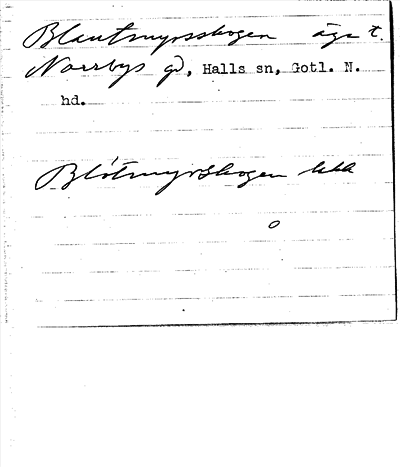 Blautmyrsskogen äga t.
Norrbys gd, Halls sn, Gotl. N.
hd.
Blötmyrskogen